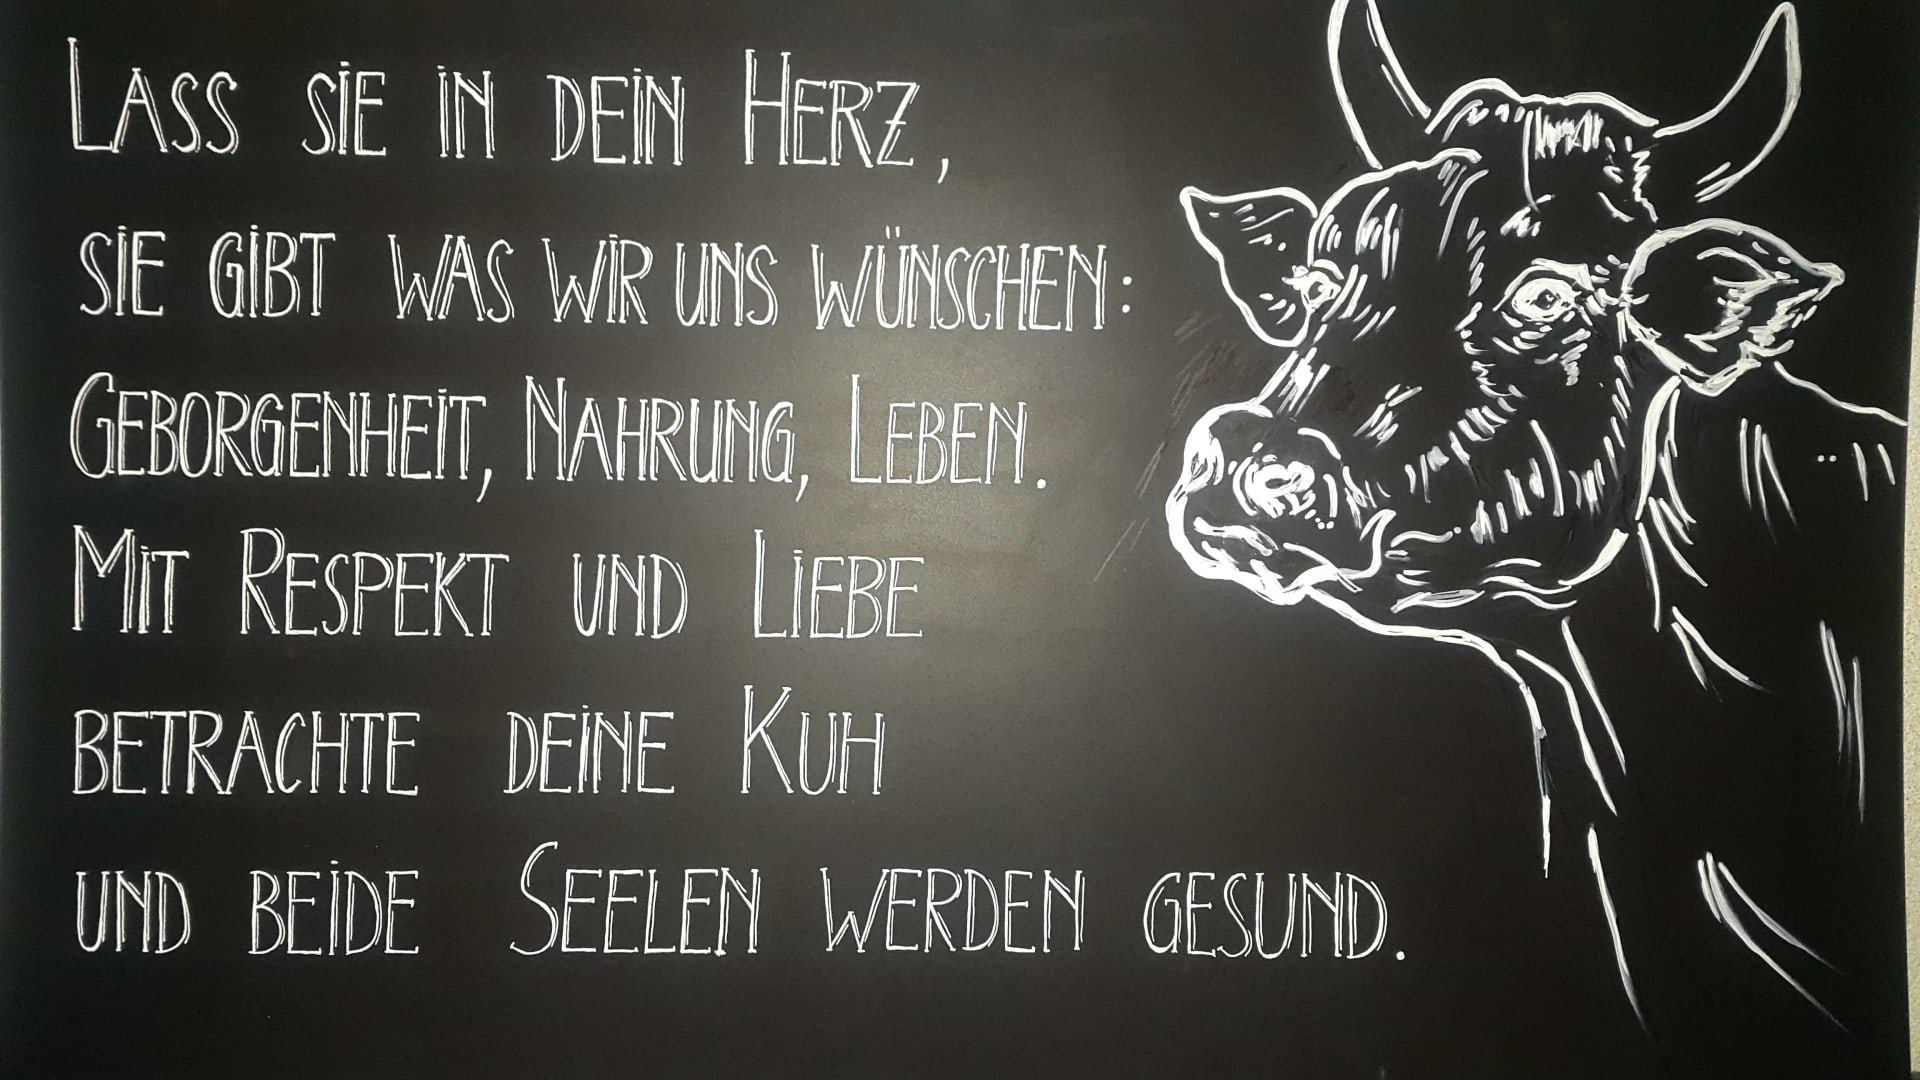 Lass sie in dein Herz,
sie gibt was wir uns wünschen:
Geborgenheit, Nahrung, Leben.
Mit Respekt und Liebe
betrachte deine Kuh
und beide Seelen werden gesund.